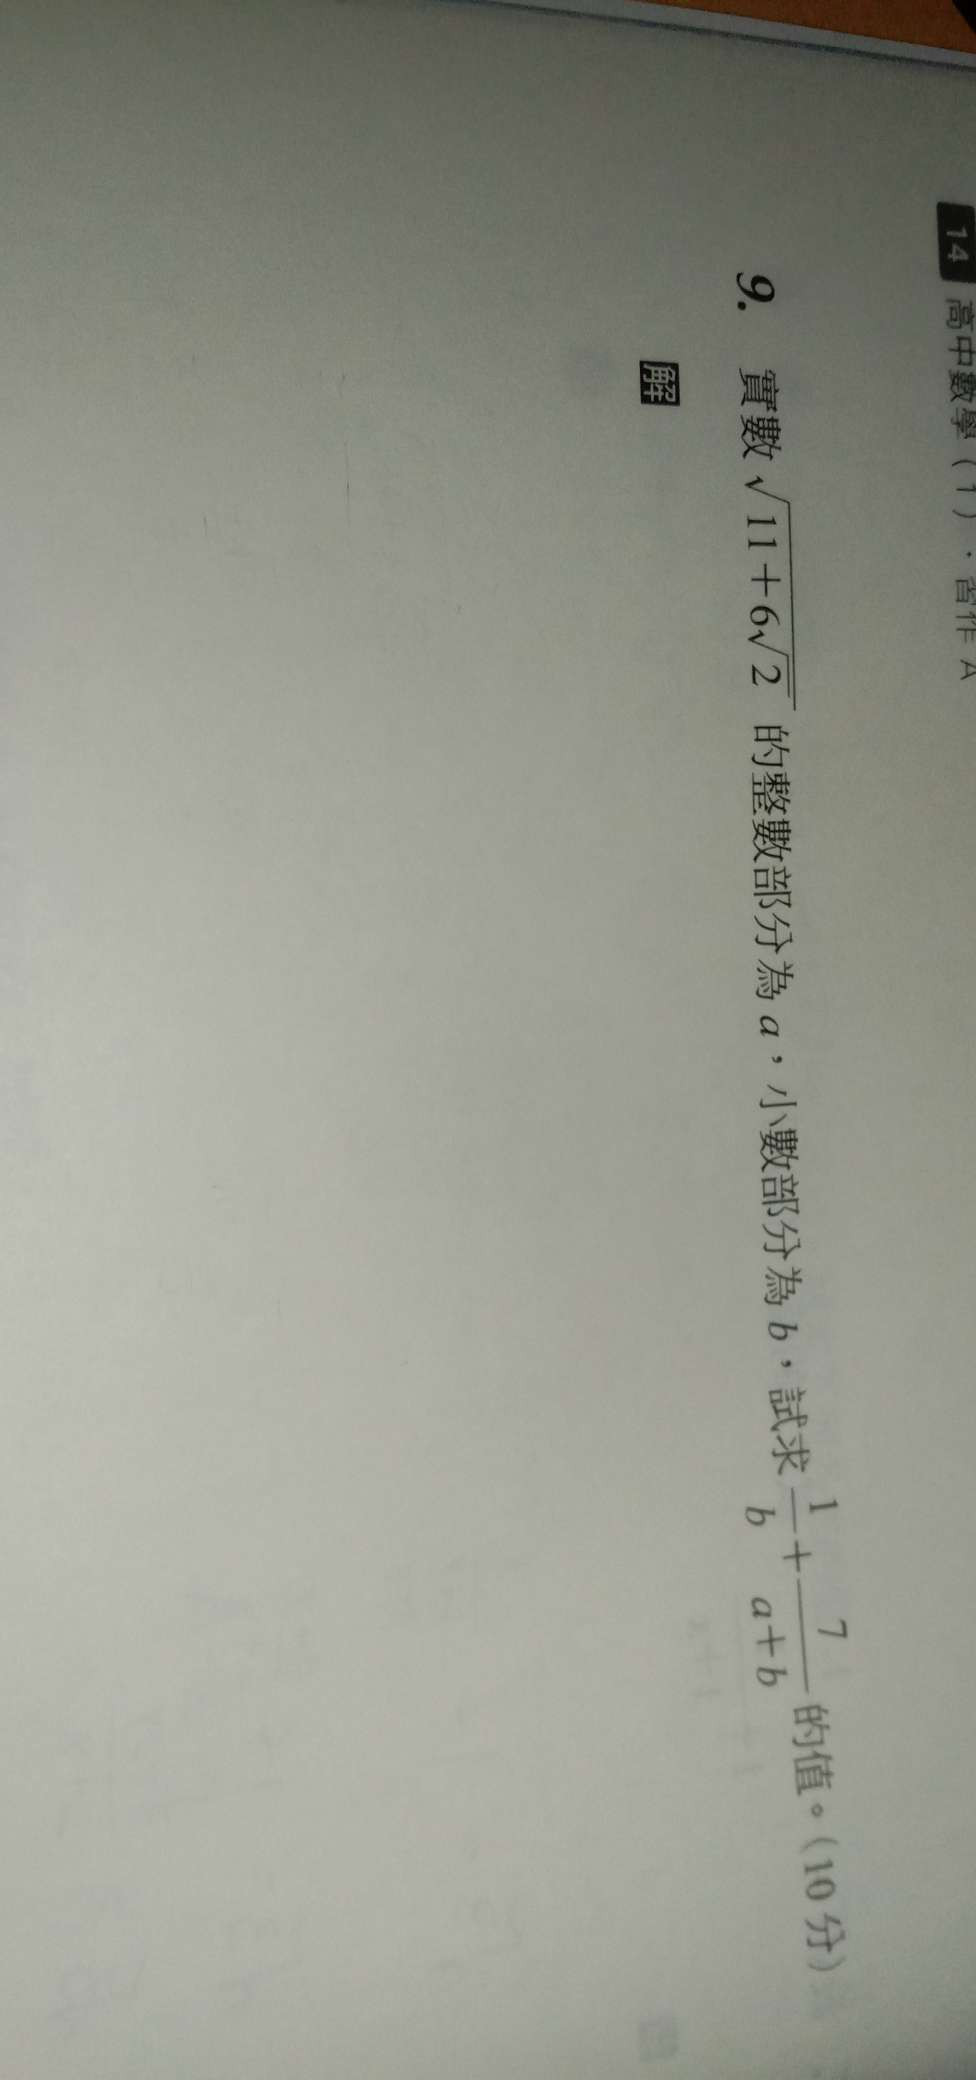 14 高中數學（1）．習作 A
9. 實數 √(11+6√2) 的整數部分為 a，小數部分為 b，試求 1/b + 7/(a+b) 的值。（10 分）
解